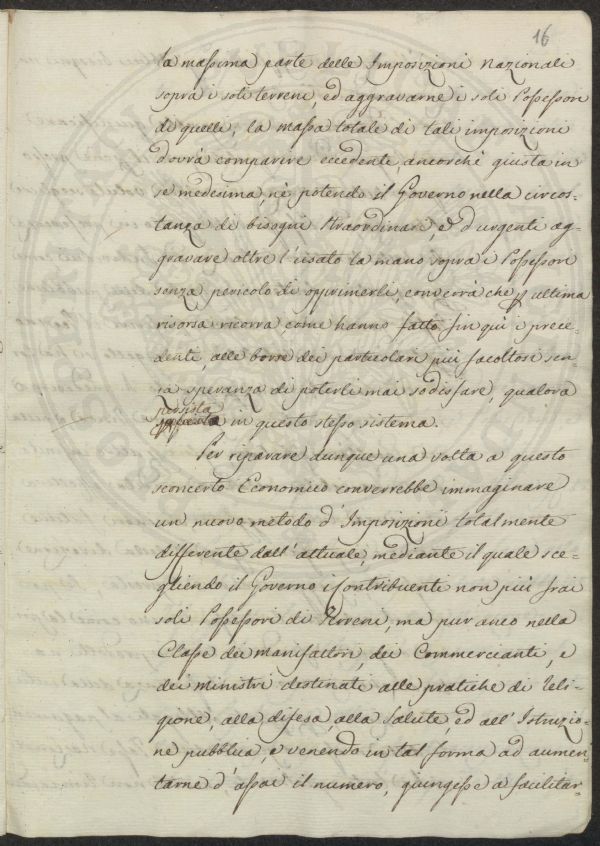 16
la massima parte delle Imposizioni Nazionali
sopra i soli terreni, ed aggravarne i soli Possessori
di quelli, la massa totale di tali imposizioni
dovrà comparire eccedente, ancorchè giusta in
se medesima, nè potendo il Governo nella circos-
tanza di bisogni straordinari, e d'urgenti ag-
gravare oltre l'usato la mano sopra i Possessori
senza pericolo di opprimerli, converrà che p ultima
risorsa ricorra come hanno fatto fin qui i prece-
denti, alle borse dei particolari più facoltosi sen-
za speranza di poterli mai sodisfare, qualora
persista
in questo stesso sistema.
Per riparare dunque una volta a questo
sconcerto Economico converrebbe immaginare
un nuovo metodo d'Imposizioni totalmente
differente dall'attuale, mediante il quale sce-
gliendo il Governo i Contribuenti non più frai
soli Possessori di Terreni, ma pur anco nella
Classe dei manifattori, dei Commercianti, e
dei Ministri destinati alle pratiche di Reli-
gione, alla difesa, alla Salute, ed all'Istruzio-
ne pubblica, e venendo in tal forma ad aumen-
tarne d'assai il numero, giungesse a facilitar-